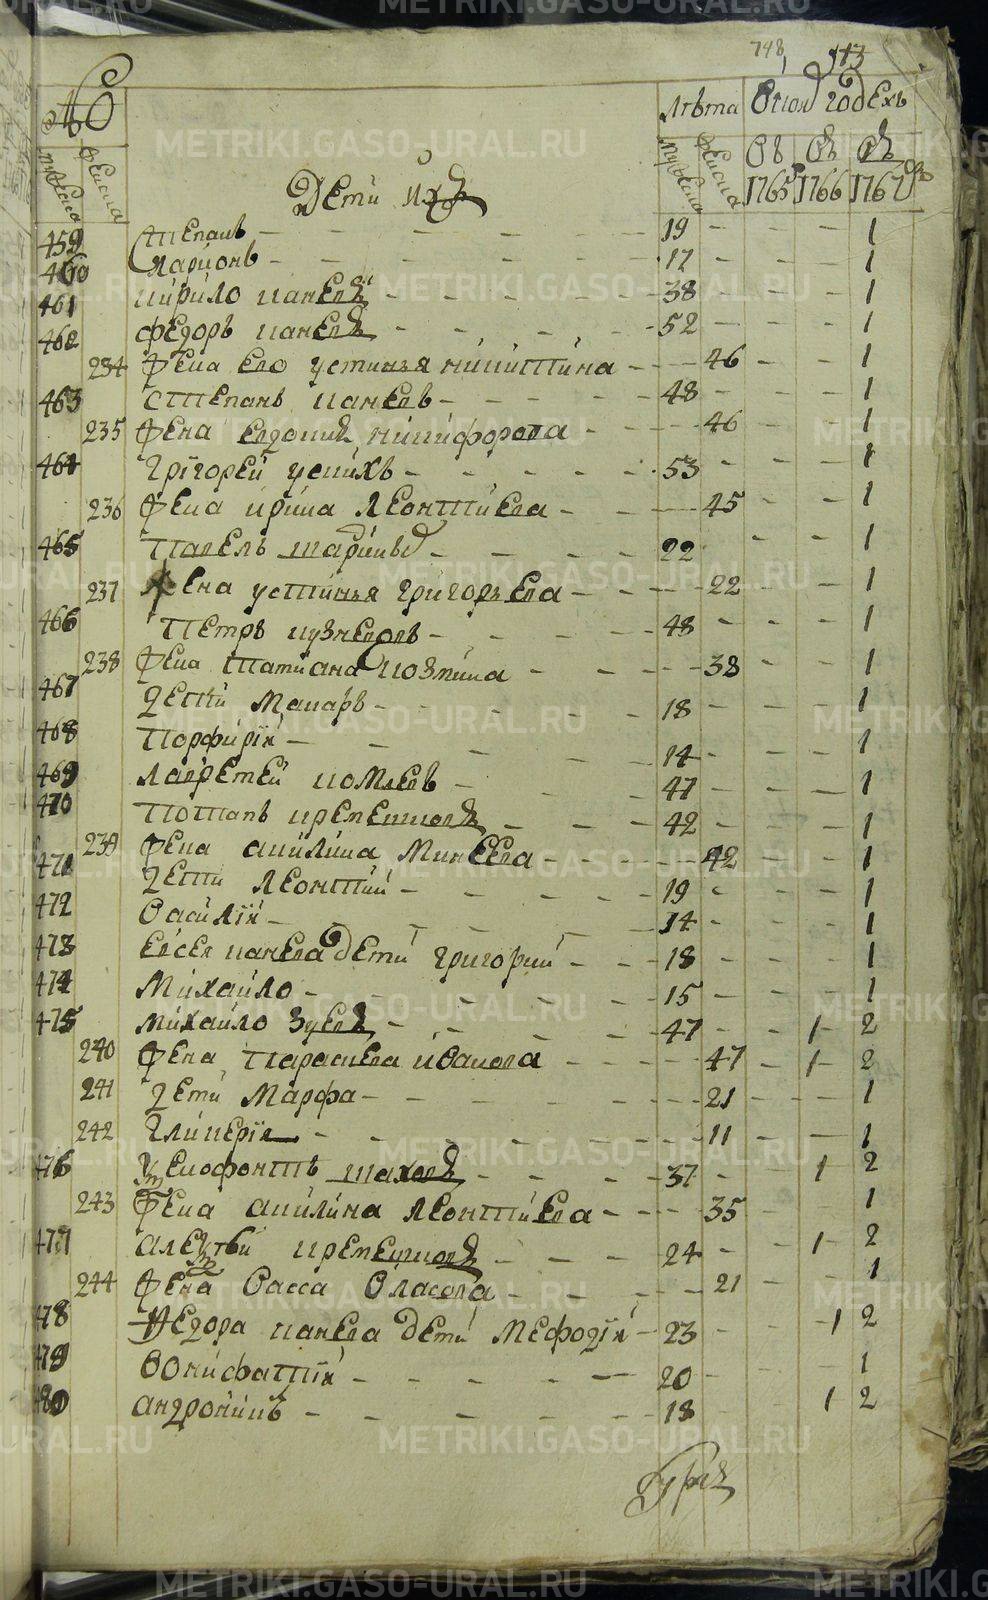 748 543
Лѣта В коихъ годехъ
мужска женска мужска женска въ 1765 въ 1766 въ 1767
Дети ихъ
459 степанъ 19 1
460 Ларионъ 17 1
461 кирило каневъ 38 1
462 федоръ каневъ 52 1
234 жена ево устинья никитина 46 1
463 степанъ каневъ 48 1
235 жена евдокия никифорова 46 1
464 григорей 53 1
236 жена ирина леонтиева 45 1
465 павелъ 22 1
237 жена устинья григорьева 22 1
466 петръ кузнецовъ 48 1
238 жена татиана козмина 38 1
467 дети макаръ 18 1
468 порфирїи 14 1
469 лаврентей 47 1
470 потапъ кремешковъ 42 1
239 жена акилина минеева 42 1
471 дети леонтий 19 1
472 василїи 14 1
473 евсея канева дети григорий 18 1
474 михаило 15 1
475 михаило зуевъ 47 1 2
240 жена парасковья иванова 47 1 2
241 дети марфа 21 1
242 гликерїя 11 1
476 ксенофонтъ шаховъ 37 1 2
243 жена акилина леонтиева 35 1
477 алексей кремешковъ 24 1 2
244 жена васса власова 21 1
478 федора канева дети мефодїи 23 1 2
479 вонифатїи 20 1
480 андроникъ 18 1 2
METRIKI.GASO-URAL.RU